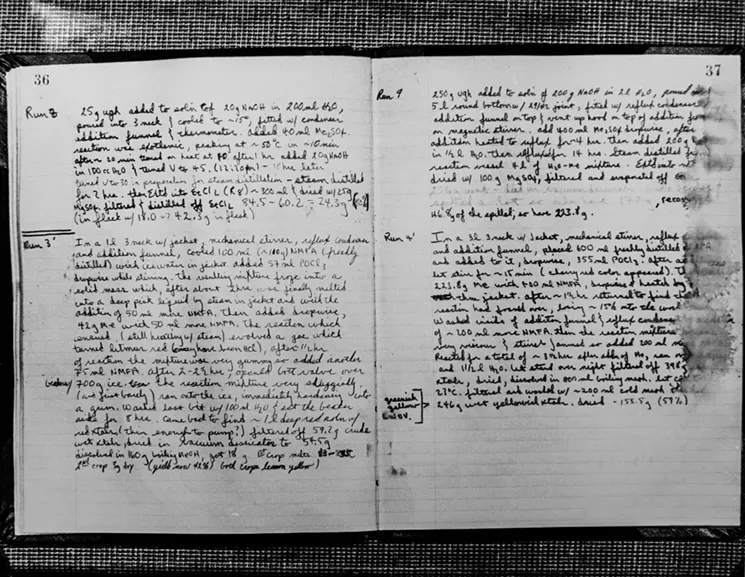 36
Run 8 25g ugh added to sol'n of 20g NaOH in 200 ml H₂O,
poured into 3 neck & cooled to ~15°, fitted w/ condenser
addition funnel & thermometer. added 40 ml Me₂SO₄.
reaction was exothermic, peaking at ~50°C in ~10 min
after ~20 min turned on heat at 80 after 1 hr added 20g NaOH
in 100 cc H₂O & turned V to 45. (12:20 pm) - later
turned V to 50 in preparation for steam distillation - steam distilled
for 2 hrs. then Ext'd into EtCl₂ ~300 ml & dried w/ 25g
MgSO₄, filtered & distilled off EtCl₂ 84.5 - 60.2 = 24.3g
(in flask w/ 18.0 → 42.3g in flask)
Run 3' In a 1l 3 neck w/ jacket, mechanical stirrer, reflux condenser
and addition funnel, cooled 100 ml NMFA (freshly
distilled) with ice water in jacket added 57 ml POCl₃
dropwise while stirring. The resulting mixture froze into a
solid mass which, after about 2 hr was finally melted
into a deep pink liquid by steam in jacket and with the
addition of 50 ml more NMFA. Then added dropwise,
42g Me with 50 ml more NMFA. The reaction which
ensued (still heating w/ steam) evolved a gas which
turned litmus red (may have been HCl), after 1½ hr
of reaction the mixture was very gummy so added another
75 ml NMFA. after 2 - 2½ hr, opened bott valve over
700g ice. the reaction mixture very sluggishly
(at first barely) ran onto the ice, immediately hardening into
a gum. Washed last bit w/ 100 ml H₂O & set the beaker
aside for 8 hrs. Came back to find ~1l deep red soln w/
red xtals (thin enough to pump?) filtered off 59.2g crude
wet xtals, dried in vacuum dessicator to 54.5g
dissolved in 160g boiling MeOH, got 18g 1st crop
2nd crop 3g dry (yield now 42%) both crops lemon yellow)
37
Run 9 250g ugh added to sol'n of 200g NaOH in 2l H₂O, poured
5l round bottom w/ 29/42 joint, fitted w/ reflux condenser
addition funnel on top & vent up hood on top of addition
on magnetic stirrer. add 400 ml Me₂SO₄ dropwise, after
addition heated to reflux for 4 hr. Then added 200g
in 1½ l H₂O. Then reflux for 14 hr. Steam distilled from
reaction vessel 4l of H₂O-Me mixture. Extd into
dried w/ 100g MgSO₄, filtered and evaporated off
46.8g of the spilled, so have 223.8g.
Run 4' In a 3l 3 neck w/ jacket, mechanical stirrer, reflux
and addition funnel, placed 600 ml freshly distilled
and added to it, dropwise, 355 ml POCl₃. after
let stir for ~15 min (cherry red color appeared).
223.8g Me with 400 ml NMFA, dropwise & heated by
thru jacket. after ~1½ hr returned to find the
reaction had foamed over, losing ~15%
Washed inside of addition funnel & reflux
of ~200 ml more NMFA. then the reaction mixture
very viscous & stirrer jammed so added 200 ml
Reacted for a total of ~3½ hrs after addn of Me, ran
and 1½ l H₂O. let stand over night filtered off 398g
xtals, dried, dissolved in 800 ml boiling meoh. let
23°C. filtered and washed w/ ~200 ml cold meoh
greenish yellow 246g wet yellow xtals. dried - 153.5g (57%)